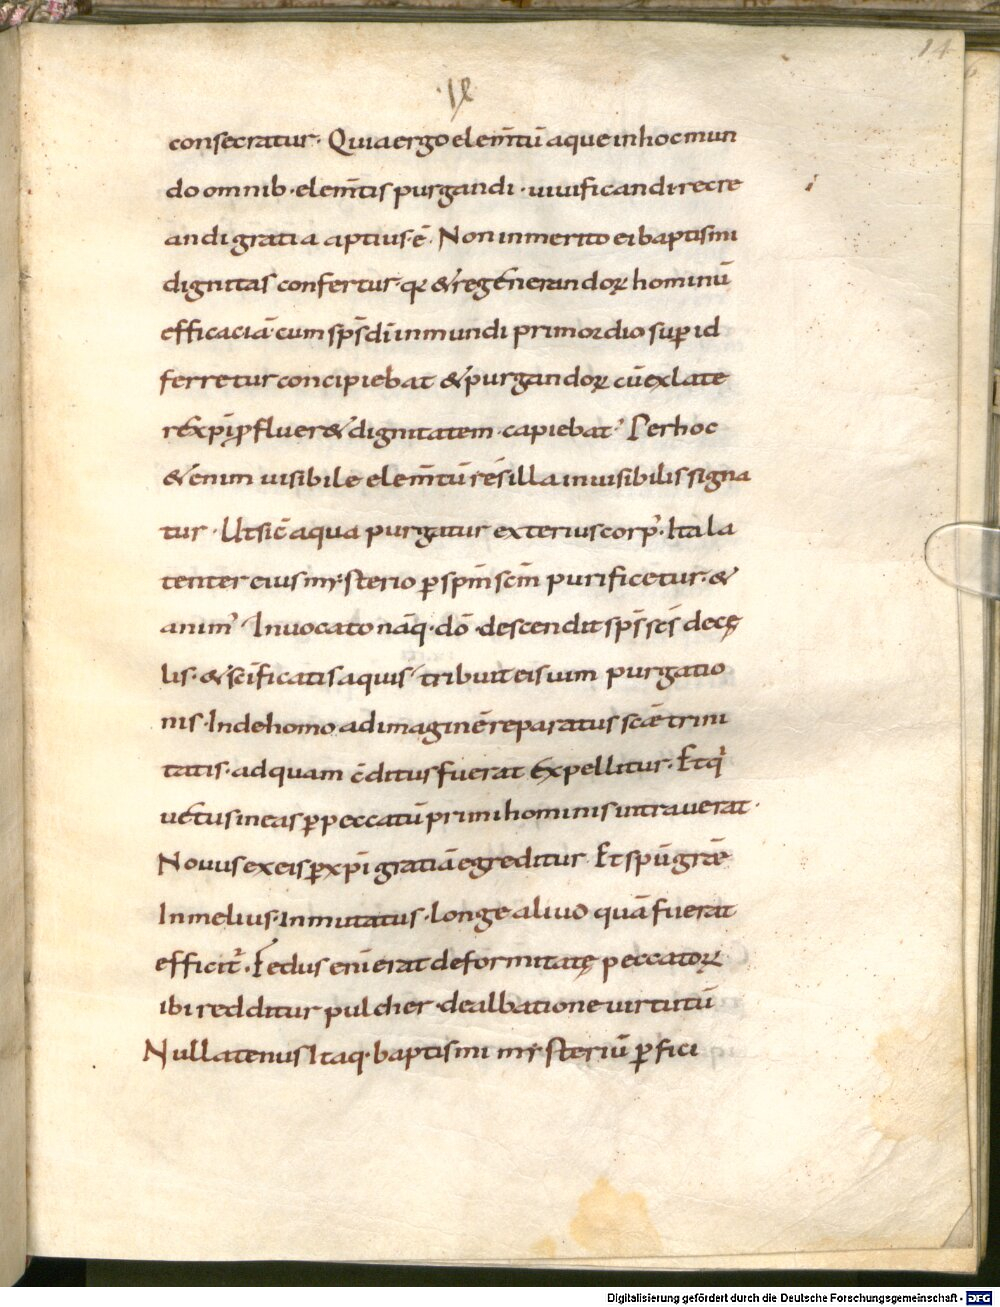 14
IX
consecratur· Quia ergo elem̄tū aque in hoc mun
do omnib·elem̄tis purgandi·uiuificandi recre
andi gratia aptius·ē· Non inmerito ei baptismi
dignitas confertur·qꝛ &regenerandoꝝ hominū
efficaciā·cum sp̄s dī in mundi primordio suꝑ id
ferretur concipiebat &purgandoꝝ cū ex latere
xp̄i ꝓfluer& dignitatem·capiebat· Per hoc
&enim uisibile elem̄tū res illa inuisibilis signa
tur· Ut sic̄ aqua purgatur exterius corp᾿·Ita la
tenter eius mysterio ꝑ sp̄m sc̄m purificetur·&
anim᾿ Inuocato nāq·dō·descendit sp̄s sc̄s de cę
lis·&sc̄ificatis aquis tribuit eis uim purgatio
nis·Inde homo ad imaginē reparatus sc̄ae trini
tatis·ad quam c̄ditus fuerat Expellitur· Et q᷒
uetus in eas ꝑ peccatū primi hominis intrauerat·
Nouus ex eis ꝑ xp̄i gratiā egreditur Et sp̄ū grāe
In melius·Inmutatus·longe aliud quā fuerat
efficit᷒·Fedus enī erat deformitatę peccatoꝝ
ibi redditur pulcher·dealbatione uirtutū
Nullatenus Itaq·baptismi mysteriū ꝑfici
Digitalisierung gefördert durch die Deutsche Forschungsgemeinschaft - DFG